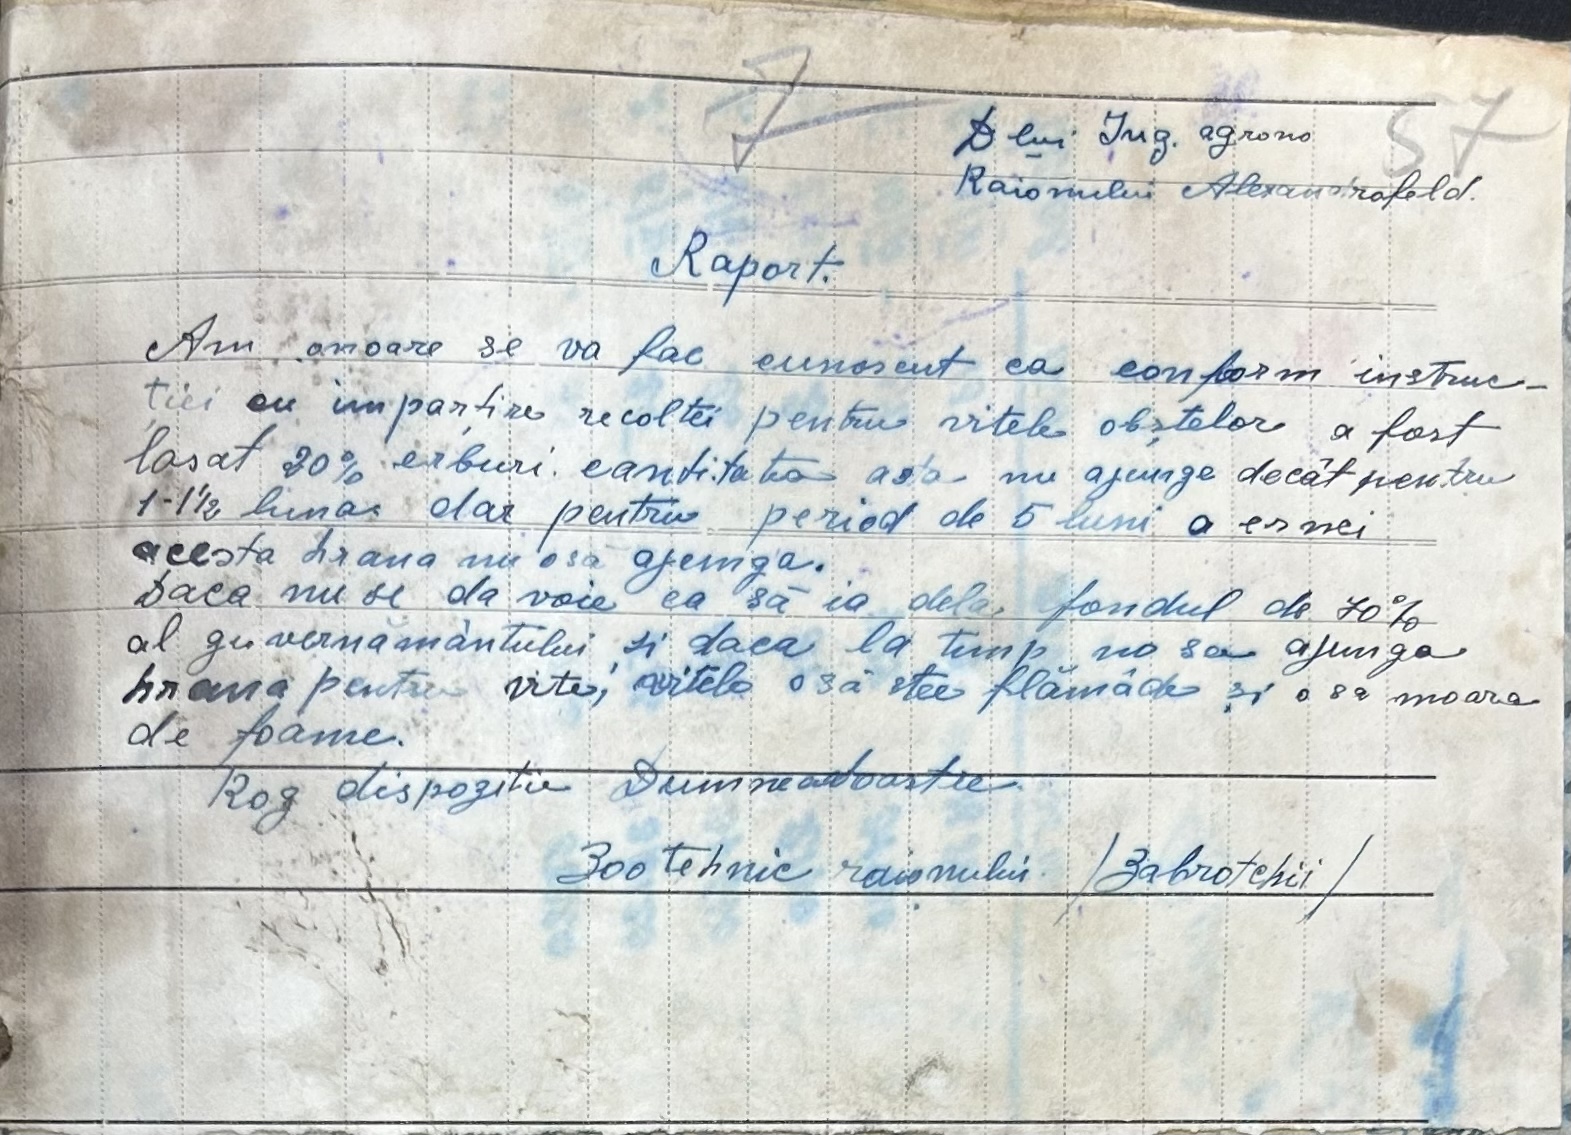 7
57
Dlui Ing. agrono
Raionului Alexandrofeld.
Raport.
Am onoare se va fac cunoscut ca conform instruc-
ției cu imparțire recoltei pentru vitele obștelor a fost
lasat 30% erburi. cantitatea asta nu ajunge decât pentru
1-1½ luna dar pentru period de 5 luni a ernei
acesta hrana nu osă ajunga.
Daca nu se da voie ca să ia dela fondul de 70%
al guvernământului si daca la timp no sa ajunga
hrana pentru vite, vitele osă stee flămâde și o sa moara
de foame.
Rog dispozitie Dumneavoastre
Zootehnic raionului /Zabrotchii/